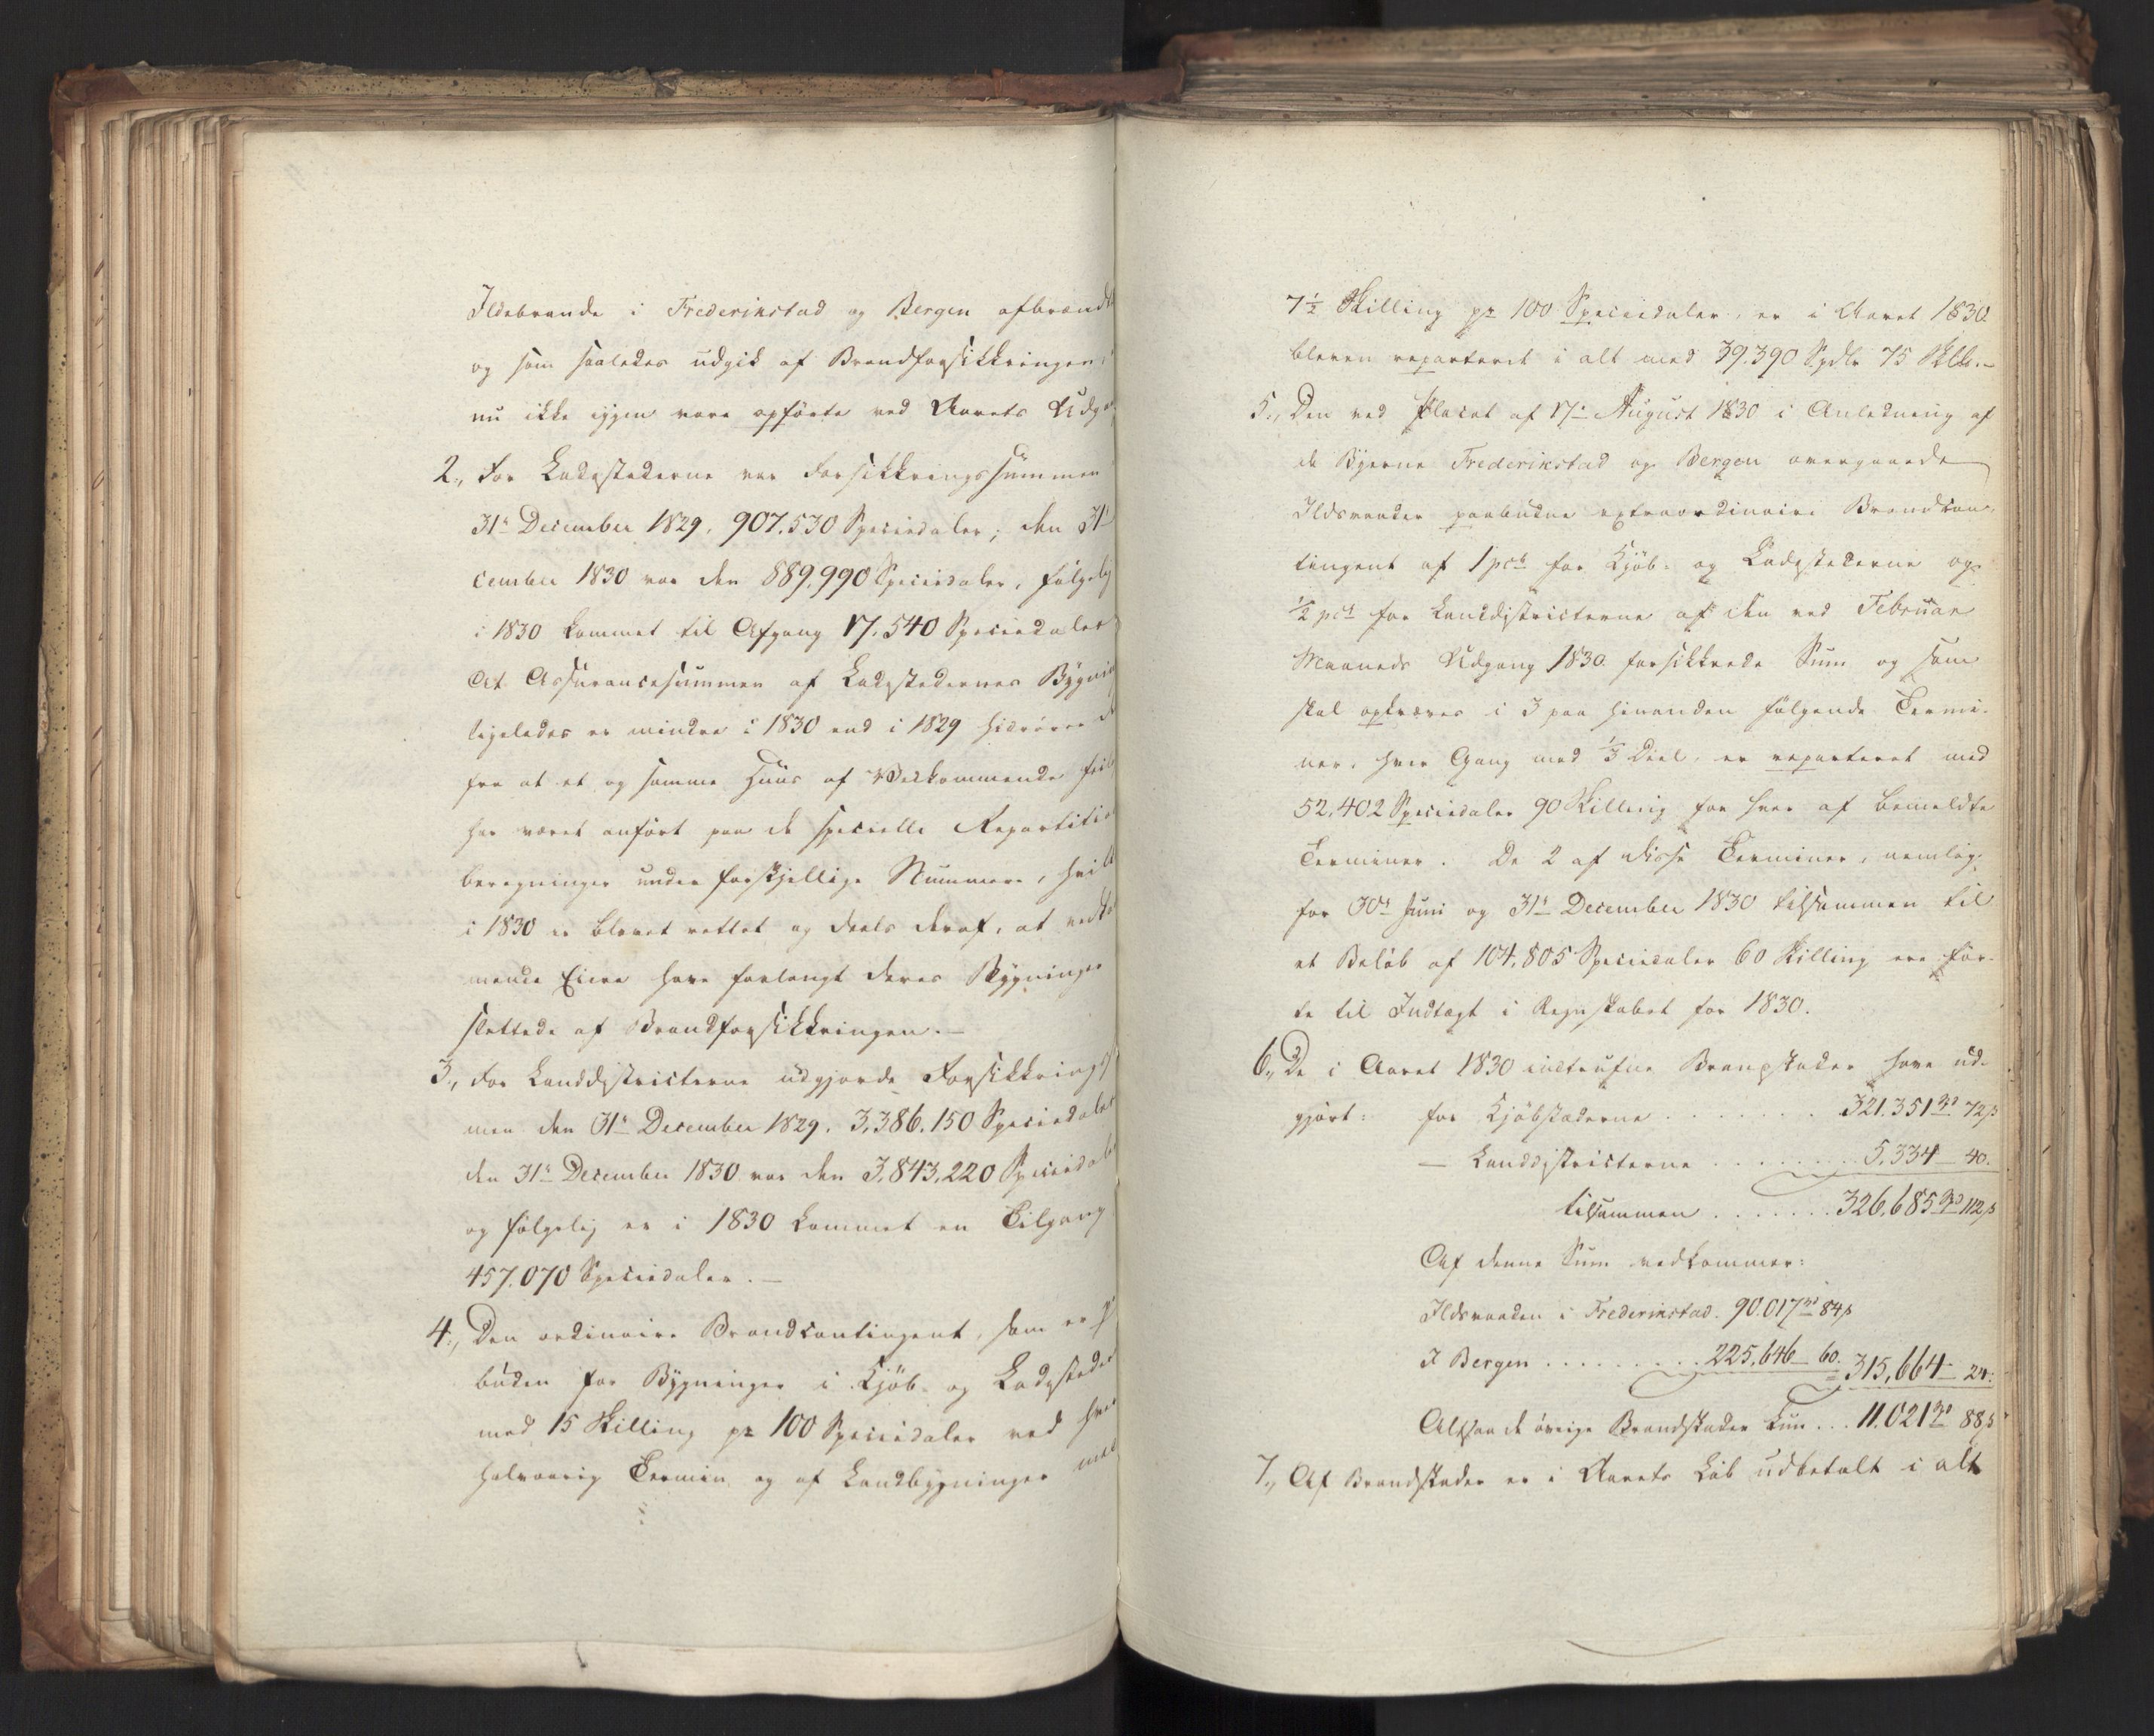 Ildebrande i Frederikstad og Bergen afbrændte
og som saaledes udgik af Brandforsikkringen,
nu ikke igjen vare opförte ved Aarets Udga
2., For Ladestederne var Forsikkringssummen
31te December 1829, 907.530 Speciedaler; den 31te
cember 1830 var den 889.990 Speciedaler, fölgelig
i 1830 kommet til Afgang 17.540 Speciedaler
At Assurancesummen af Ladestedernes Bygnin
ligeledes er mindre i 1830 end i 1829 hidrörer d
fra at et og samme Huus af Vedkommende feil
har været anfört paa de specielle Repartitio
beregninger under forskjellige Nummere, hvilk
i 1830 er blevet rettet og deels deraf, at vedko
mende Eiere have forlangt deres Bygninger
slettede af Brandforsikkringen.-
3., For Landdistricterne udgjorde Forsikkrings
men den 31te December 1829, 3,386.150 Speciedaler
den 31te December 1830 var den 3,843,220 Speciedal
og fölgelig er i 1830 kommet en Tilgang
457.070 Speciedaler.-
4., Den ordinaire Brandcontingent, som er p
buden for Bygninger i Kjöb- og Ladesteder
med 15 Skilling pr 100 Speciedaler ved hver
halvaarig Termin og af Landbygninger med
7½ Skilling pr 100 Speciedaler, er i Aaret 1830
bleven reparteret i alt med 39.390 Spdlr 75 Skll.-
5., Den ved Placat af 17de August 1830 i Anledning af
de Byerne Frederikstad og Bergen overgaaede
Ildsvaader paabudne extraordinaire Brandcon-
tingent af 1 pct for Kjöb- og Ladestederne og
½ pct for Landdistricterne af den ved Februar
Maaneds Udgang 1830 forsikkrede Sum og som
skal opkræves i 3 paa hinanden fölgende Termi-
ner, hver Gang med ⅓ Deel, er reparteret med
52,402 Speciedaler 90 Skilling for hver af bemeldte
Terminer. De 2 af disse Terminer, nemlig
for 30te Juni og 31te December 1830 tilsammen til
et Belöb af 104.805 Speciedaler 60 Skilling ere för-
te til Indtægt i Regnskabet for 1830.
6., De i Aaret 1830 indtrufne Brandskader have ud-
gjort: for Kjöbstæderne . . . . . . . 321.351 Spd 72 ß
— Landdistricterne . . . . . . . 5,334 — 40.
tilsammen . . . . . . . 326,685 Spd 112 ß
Af denne Sum vedkommer:
Ildsvaaden i Frederikstad. 90.017 Spd 84 ß
I Bergen . . . . . . . . . 225,646 — 60. = 315,664 — 24.
Altsaa de övrige Brandskader kun . . . 11.021 Spd 88 ß
7., Af Brandskader er i Aarets Löb udbetalt i alt